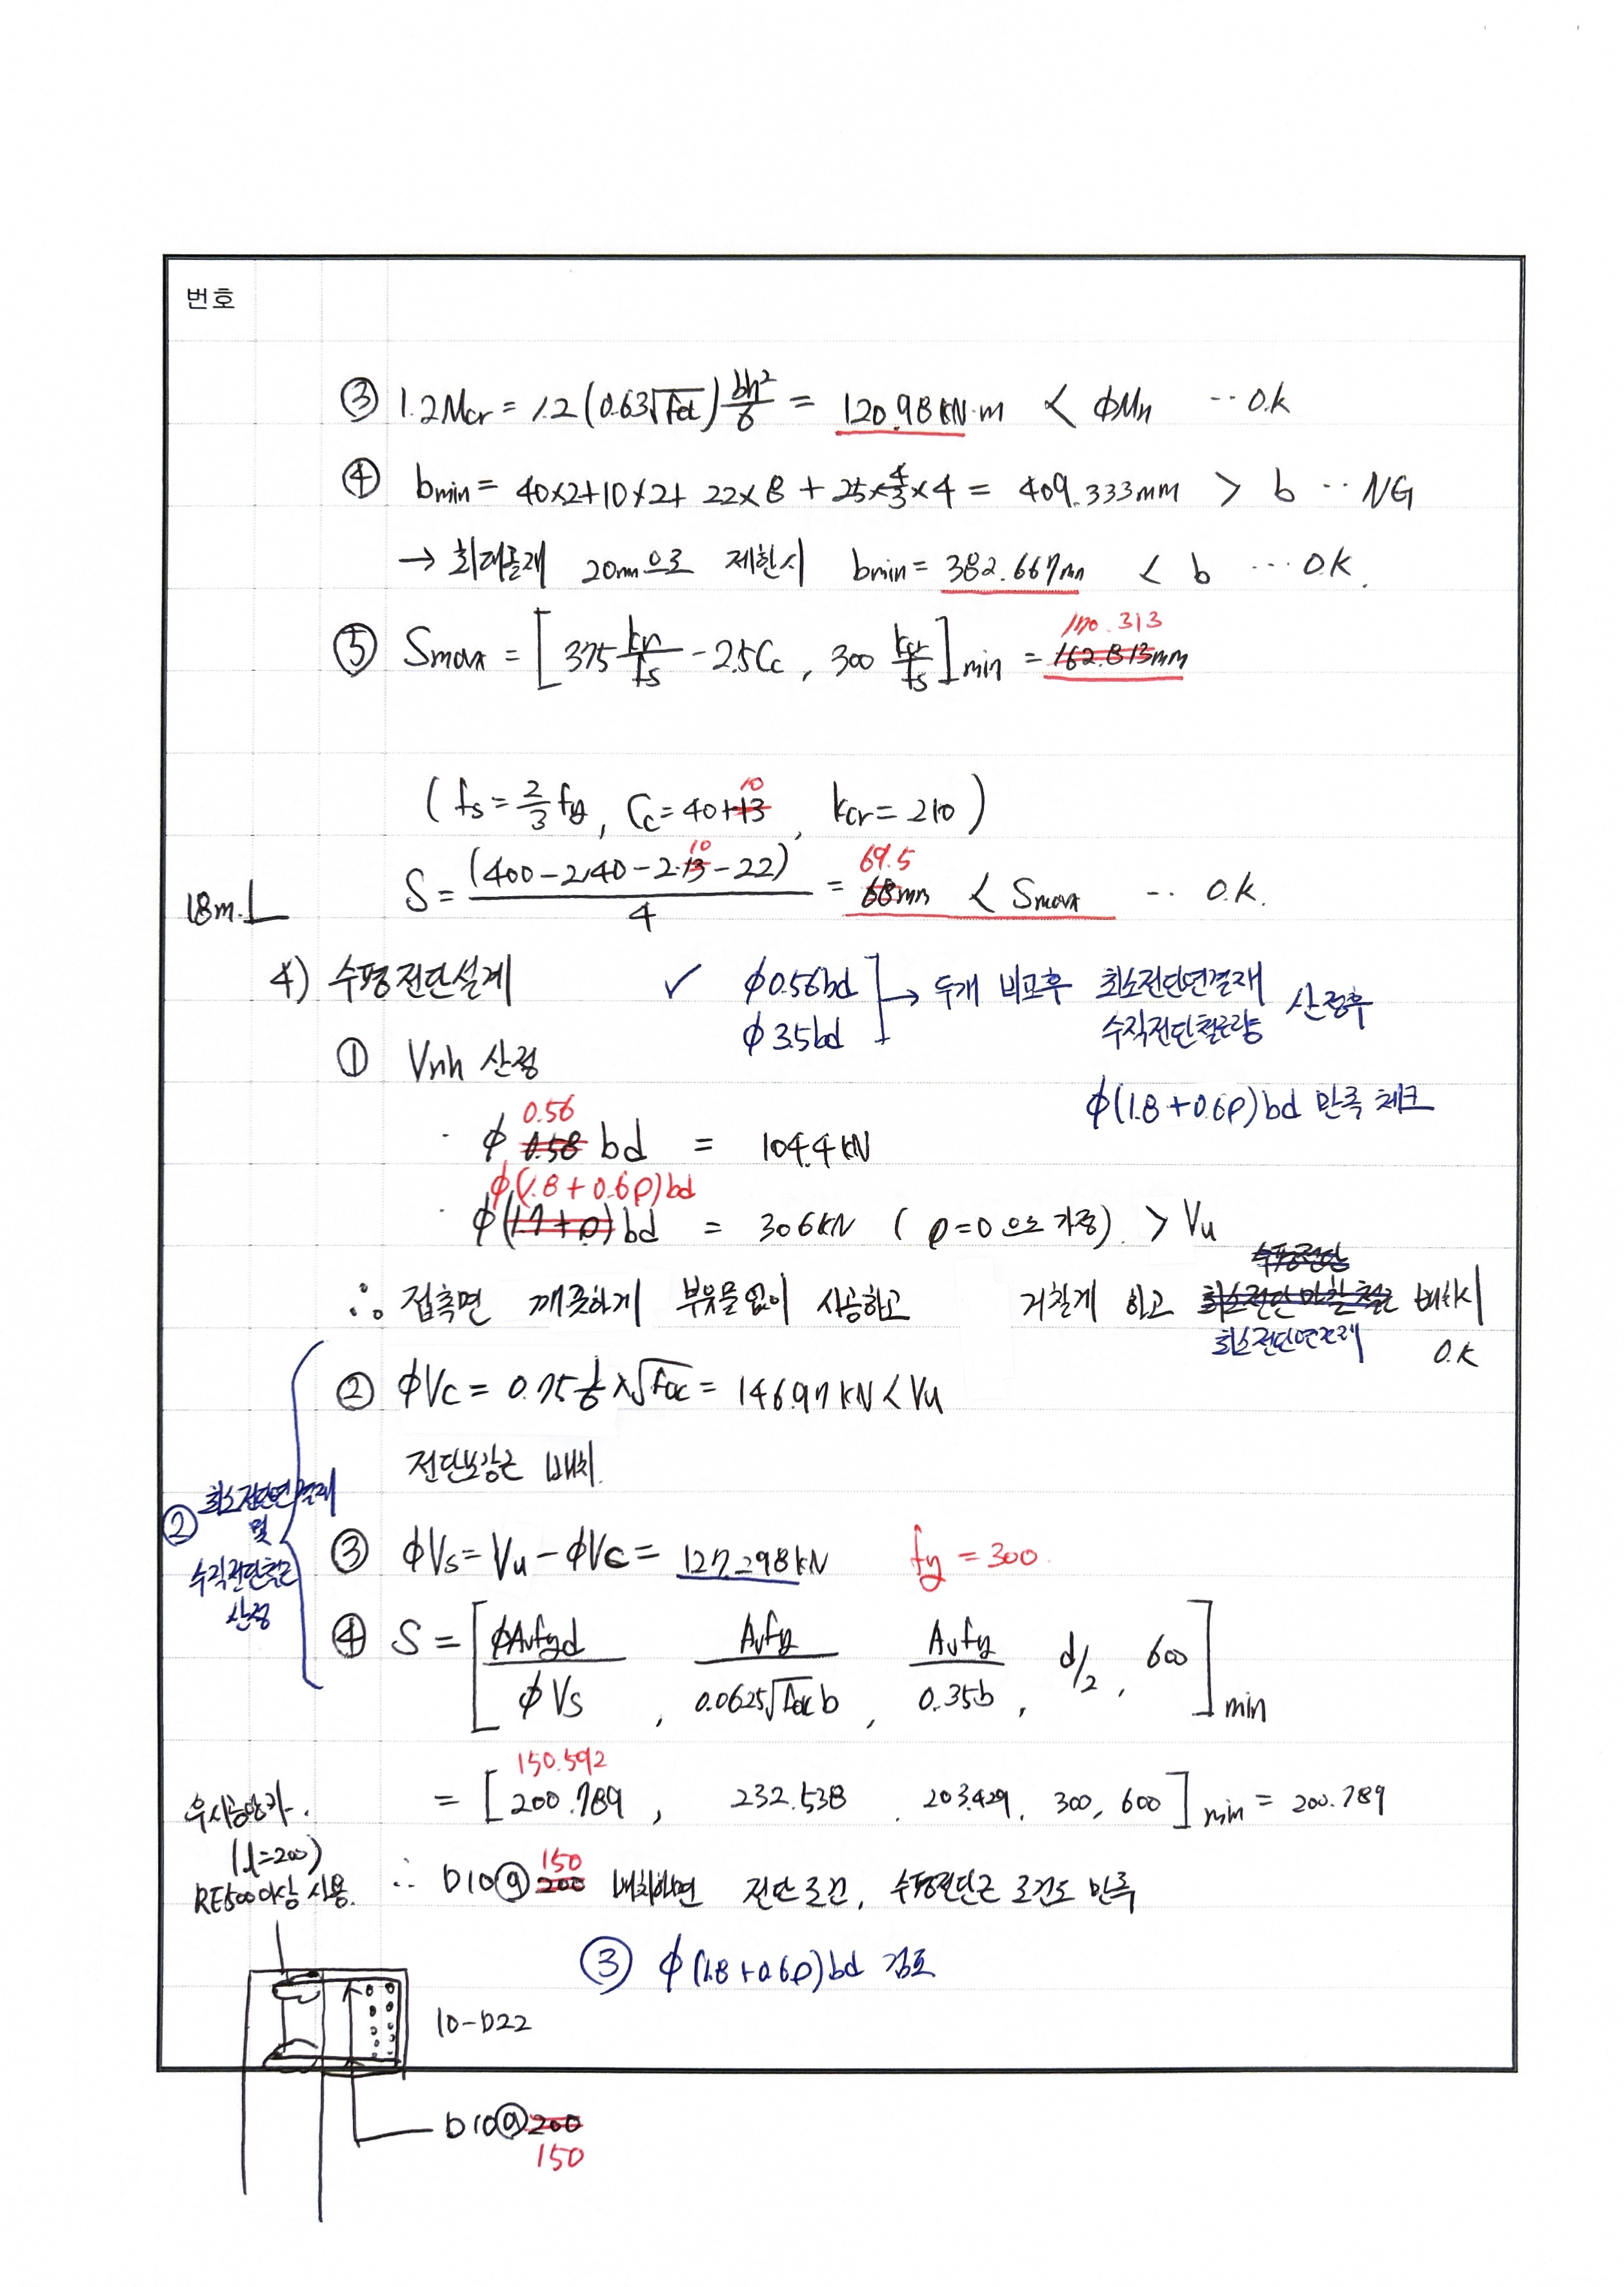 번호
③ 1.2Mcr = 1.2(0.63√fck) bh²/6 = 120.98 kN·m < ϕMn ·· O.K
④ bmin = 40×2+10×2+ 22×8 + 25×4/3×4 = 409.333mm > b ·· NG
→ 최대골재 20mm으로 제한시 bmin = 382.667mm < b ··· O.K.
170.313
⑤ Smax = [ 375 kcr/fs - 2.5Cc , 300 kcr/fs ]min = 162.813mm
10
( fs = 2/3 fy, Cc = 40+13 , kcr = 210 )
10 69.5
18m. S = (400-2·40-2·13-22)/4 = 68mm < Smax ·· O.K.
4) 수평전단설계 ✓ ϕ0.56bd → 두개 비교후 최소전단연결재 산정후
ϕ3.5bd 수직전단철근량
① Vnh 산정
ϕ(1.8+0.6ρ)bd 만족 체크
0.56
· ϕ 0.58 bd = 104.4 kN
ϕ(1.8+0.6ρ)bd
· ϕ(1.7+ρ)bd = 306kN ( ρ=0 으로 가정) > Vu
수평전단
∴ 접촉면 깨끗하게 부유물없이 시공하고 거칠게 하고 최소전단마찰철근 배치시
최소전단연결재 O.K
② ϕVc = 0.75 1/6 λ√fck = 146.97 kN < Vu
전단보강근 배치.
② 최소전단연결재
및
수직전단철근
산정
③ ϕVs = Vu - ϕVc = 127.298 kN fy = 300
④ S = [ ϕAvfyd/ϕVs , Avfy/0.0625√fck b , Avfy/0.35b , d/2 , 600 ]min
150.592
= [ 200.789 , 232.538 , 203.429, 300, 600 ]min = 200.789
(l=200)
RE500이상 사용.
150
∴ D10@200 배치하면 전단조건, 수평전단근 조건도 만족
③ ϕ(1.8+0.6ρ)bd 검토
10-D22
D10@200
150